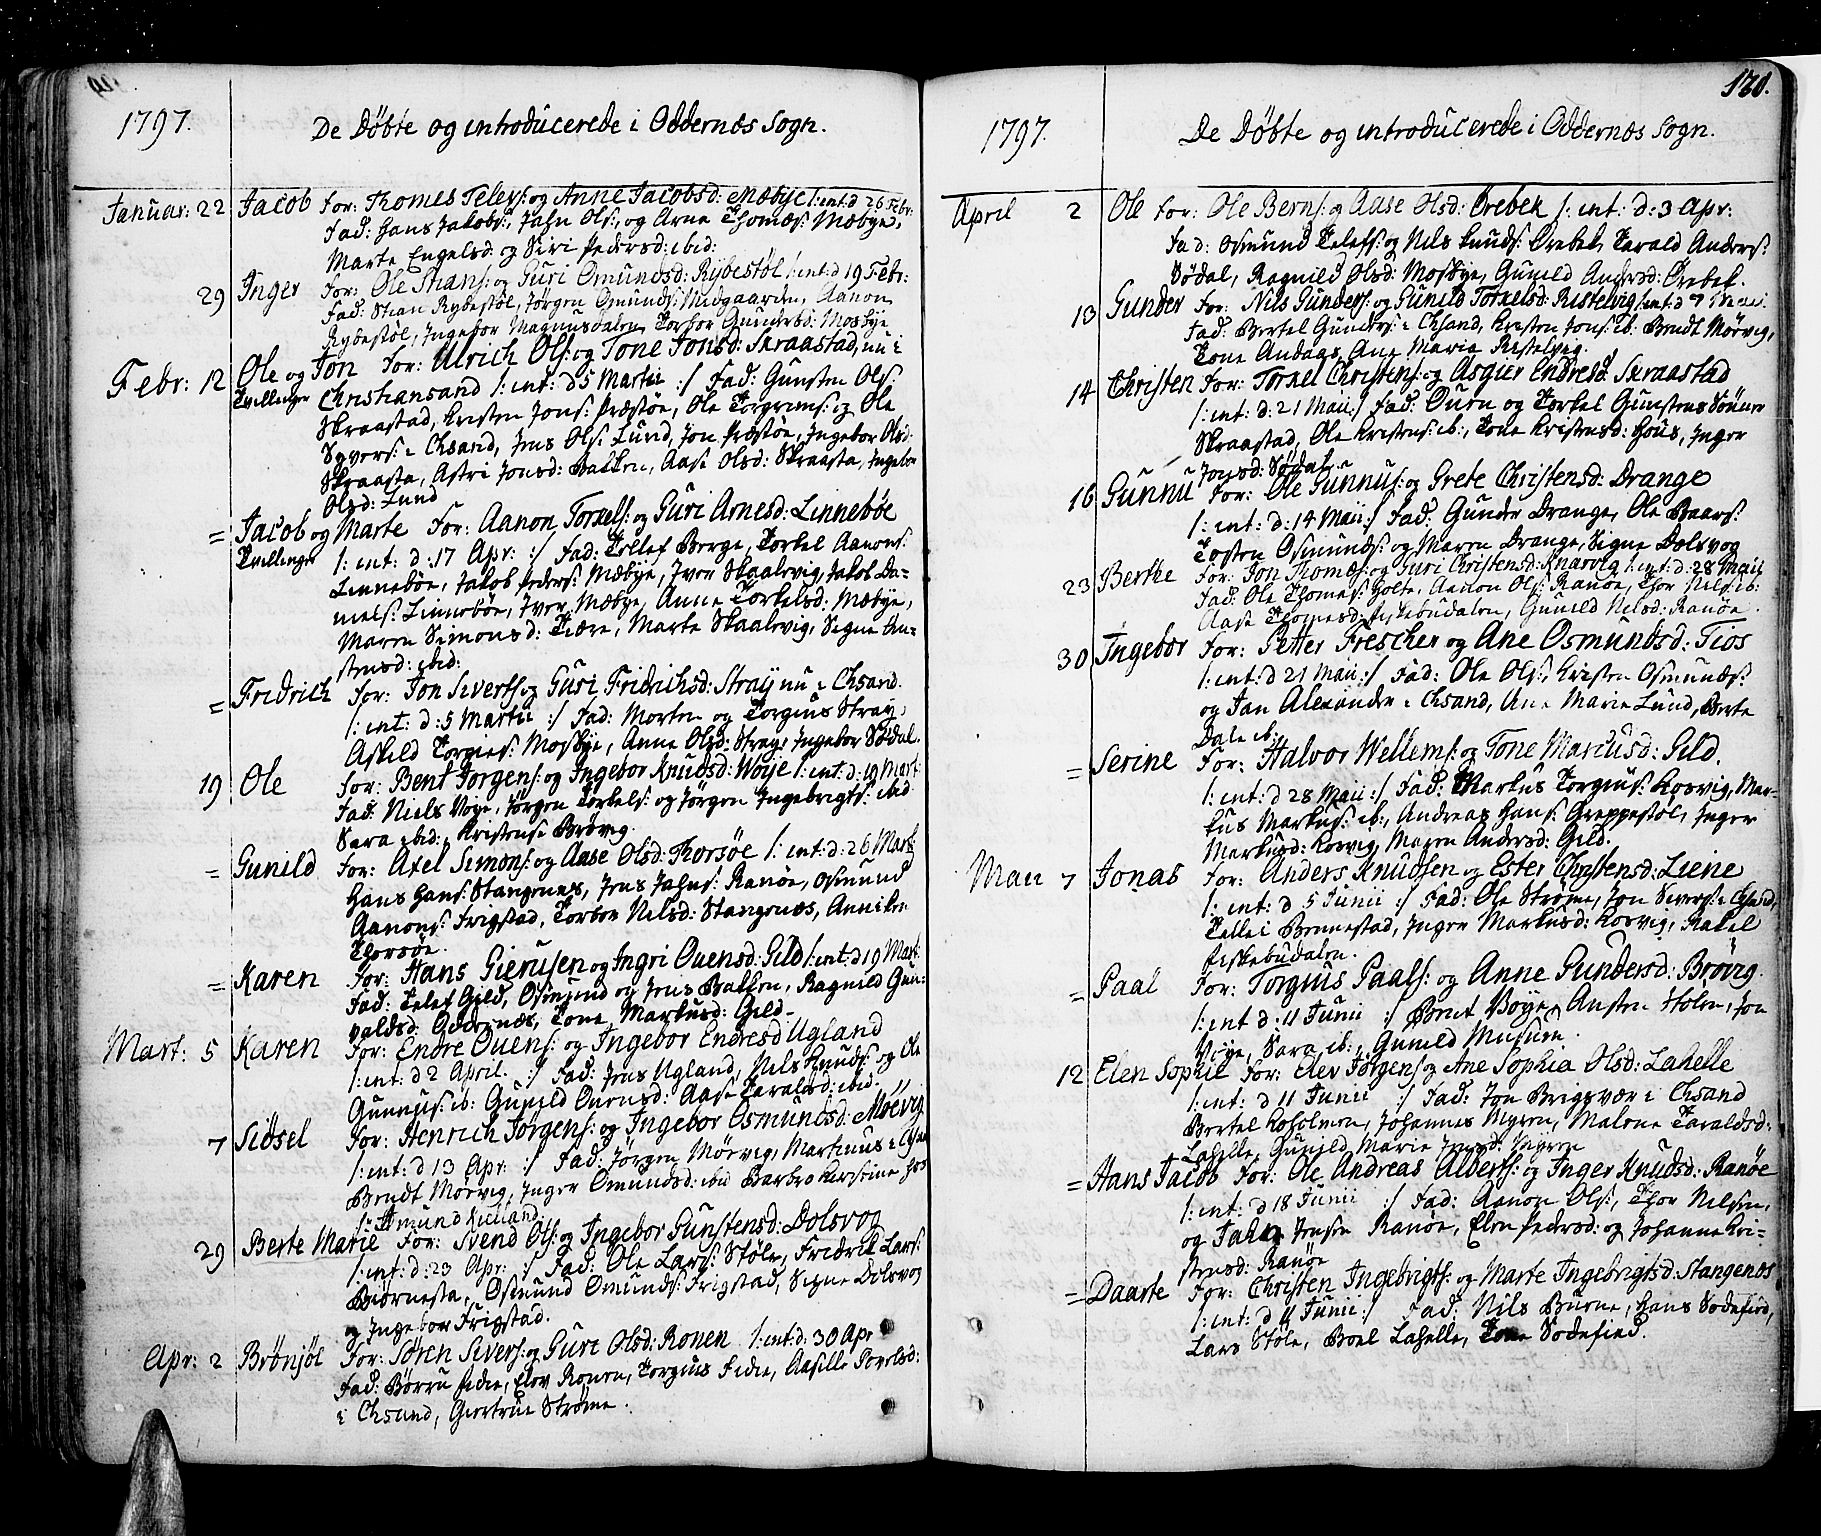 1797.
De Døbte og introducerede i Oddernæs Sogn.
Januar: 22 Jacob For: Thomes Televs: og Anne Jacobsd: Mæbye /: int: d 26 Febr:
Fad: Hans Jakobs:, Jahn Ols:, og Arne Thomæs: Mæbye,
Marte Engelsd: og Siri Pedersd: ibid:
29 Inger For: Ole Stians: og Guri Omundsd: Rybestøl /: int: d 19 Febr:
Fad: Stian Rybestøl, Jørgen Omunds: Midgaarden, Aanon
Rybestøl, Ingebor Magnusdalen, Torbor Gundersd: Mosbye
Febr: 12 Ole og Jon For: Ulrich Ols: og Tone Jonsd: Skraastad, nu i
Tvillinger Christiansand /: int: d 5 Martii :/ Fad: Gunsten Ols:
Skraastad, Kristen Jons: Præstøe, Ole Torgrims: og Ole
Syvers: i Chsand, Jens Ols: Lund, Jon Præstøe, Ingebor Olsd:
Skraasta, Astri Jonsd: Bakken, Aase Olsd: Skraasta, Ingebor
Olsd: Lund
= Jacob og Marte For: Aanon Torkels: og Guri Arnesd: Linnebøe
Tvillinger /: int: d: 17 Apr: :/ Fad: Tellef Berge, Torkel Aanons:
Linnebøe, Jakob Peders: Mæbye, Iver Skaalevig, Jakob Da=
niels: Linnebøe, Iver Mæbye, Anne Torkelsd: Mæbye,
Maren Simonsd: Tiære, Marte Skaalevig, Signe An=
stensd: ibid:
= Fridrich For: Jon Siverts: og Guri Fridrichsd: Stray nu i Chsand.
/: int: d: 5 Martii :/ Fad: Morten og Torgius Stray,
Askild Torgies: Mosbye, Anne Olsd: Stray, Ingebor Sødal.
19 Ole For: Bent Jorgens: og Ingebor Knudsd: Woije /: int: d: 19 Mart:
Fad: Niels Voye, Jørgen Torkels: og Jørgen Ingebrigts: ibid
Sara ibid:, Kristense Brøvig.
= Gunild For: Axel Simons: og Aase Olsd: Thorsøe /: int: d: 26 Mart:
Hans Hans: Stangenes, Jens Jahns: Ranøe, Osmund
Aanons: Frigstad, Torbor Nilsd: Stangenæs, Anniken
Thorsøe.
= Karen For: Hans Gierusen og Ingri Ouensd: Gild /: int: d 19 Mart:
Fad: Telef Gild, Osmund og Jens Bakken, Ragnild Gun=
valdsd: Oddernæs, Tone Markusd: Gild.
Mart: 5 Karen For: Endre Ouens: og Ingebor Endresd Ugland
/: int: d 2 April. :/ Fad: Jens Ugland, Nils Knuds: og Ole
Gunnus: ib: Gunild Ouensd: Aase Taralsd: ibid.
7 Siøsel For: Henrich Jørgens: og Ingebor Osmundsd: Møevig
/: int: d 13 Apr: :/ Fad: Jørgen Mørvig, Martinus i Chsan
Brendt Mørvig, Inger Omundsd: ibid Barbro Kirstine hos
Hr Amund Kielland.
29 Berte Marie For: Svend Ols: og Ingebor Gunstensd: Dolsvog
/: int: d: 23 Apr: :/ Fad: Ole Lars: Støle, Fridrik Lars:
Biornesta, Osmund Omunds: Frigstad, Signe Dolsvog
og Ingebor Frigstad.
Apr: 2 Brønjøl For: Søren Sivers: og Guri Olsd: Ronen /: int: d: 30 Apr
Fad: Børru Fidie, Elov Ronen, Torgius Fidie, Aasille Povelsd:
i Chsand, Giertrue Strømme.
120.
1797.
De Døbte og introducerede i Oddernæs Sogn.
April 2 Ole For: Ole Berns: og Aase Olsd: Ørebek /: int: d: 3 Apr:
Fad: Osmund Telefs: og Nils Knuds: Ørebek, Tarald Anders:
Sødal, Ragnild Olsd: Mosbye, Gunild Andersd: Ørebek.
13 Gunder For: Nils Gunders: og Gunild Torkelsd: Ristelvig /: int: d 7 Maii
Fad: Bertel Gunders: i Chsand, Kristen Jons: ib: Brendt Mørvig,
Tone Andaas, Ane Marie Ristelvig.
14 Christen For: Torkel Christens: og Asgier Endresd: Skraastad
/: int: d: 21 Maii :/ Fad: Ouen og Torkel Gunstens Sønner
Skraastad, Ole Kristens: ib:, Tone Kristensd: Hous, Inger
Jonsd: Sødal
16 Gunnu For: Ole Gunnus: og Grete Christensd: Drange
/: int: d: 14 Maii :/ Fad: Gunder Drange, Ole Baars:
Tosten Osmunds: og Maren Drange, Signe Dolsvog
23 Berthe For: Jon Thomæs: og Guri Christensd: Knarvig /: int: d: 28 Maii
Fad: Ole Thomæs: Holte, Aanon Ols: Ranøe, Thor Nils: ib:
Aase Thomesd: Fiskebudalen, Gunild Nilsd: Ranøe.
30 Ingebor For: Petter Frescher og Ane Osmundsd: Tios
/: int: d 21 Maii :/ Fad: Ole Ols:, Kristen Osmunds:
og Jan Alexander i Chsand, Ane Marie Lund, Berte
Dale ib:
= Serine For: Halvor Wellems: og Tone Marcusd: Gild.
/: int: d 28 Maii :/ Fad: Markus Torgius: Kosvig, Mar=
kus Markus: ib:, Andreas Hans: Greppestøl, Inger
Markusd: Kosvig, Maren Andersd: Gild.
Maii 7 Jonas For: Anders Knudsen og Ester Chrstensd: Liene
/: int: d 5 Junii :/ Fad: Ole Strøme, Jon Sivers: i Chsand,
Tellei Bennestad, Inger Markusd: Kosvig, Rakel
Fiskebudalen.
= Paal For: Torgius Paals: og Anne Gundersd: Brøvig.
/: int d: 11 Junii :/ Brent Voye, Austen Holen, Jon
Voye, Sara ib:, Gunild Museum.
12 Elen Sophie For: Elev Jørgens: og Ane Sophia Olsd: Lahelle
/: int: d 11 Junii :/ Fad: Jon Brigsvær i Chsand
Bertel Koholmen, Johannes Myren, Malene Taraldsd:
Lahelle, Gunild Marie Jensd: Myren
= Hans Jacob For: Ole Andreas Alberts: og Inger Knudsd: Ranøe
/: int: d 18 Junii :/ Fad: Aanon Ols:, Thor Nilsen,
og Jahn Jensen Ranøe, Elen Pedersd: og Johanne Kri=
stensd: Ranøe
= Daarte For: Christen Ingebrigts: og Marte Ingebrigtsd: Stangenæs
/: int: d 11 Junii :/ Fad: Nils Burne, Hans Sodefied,
Lars Støle, Boel Lahelle, Tone Sodefied.